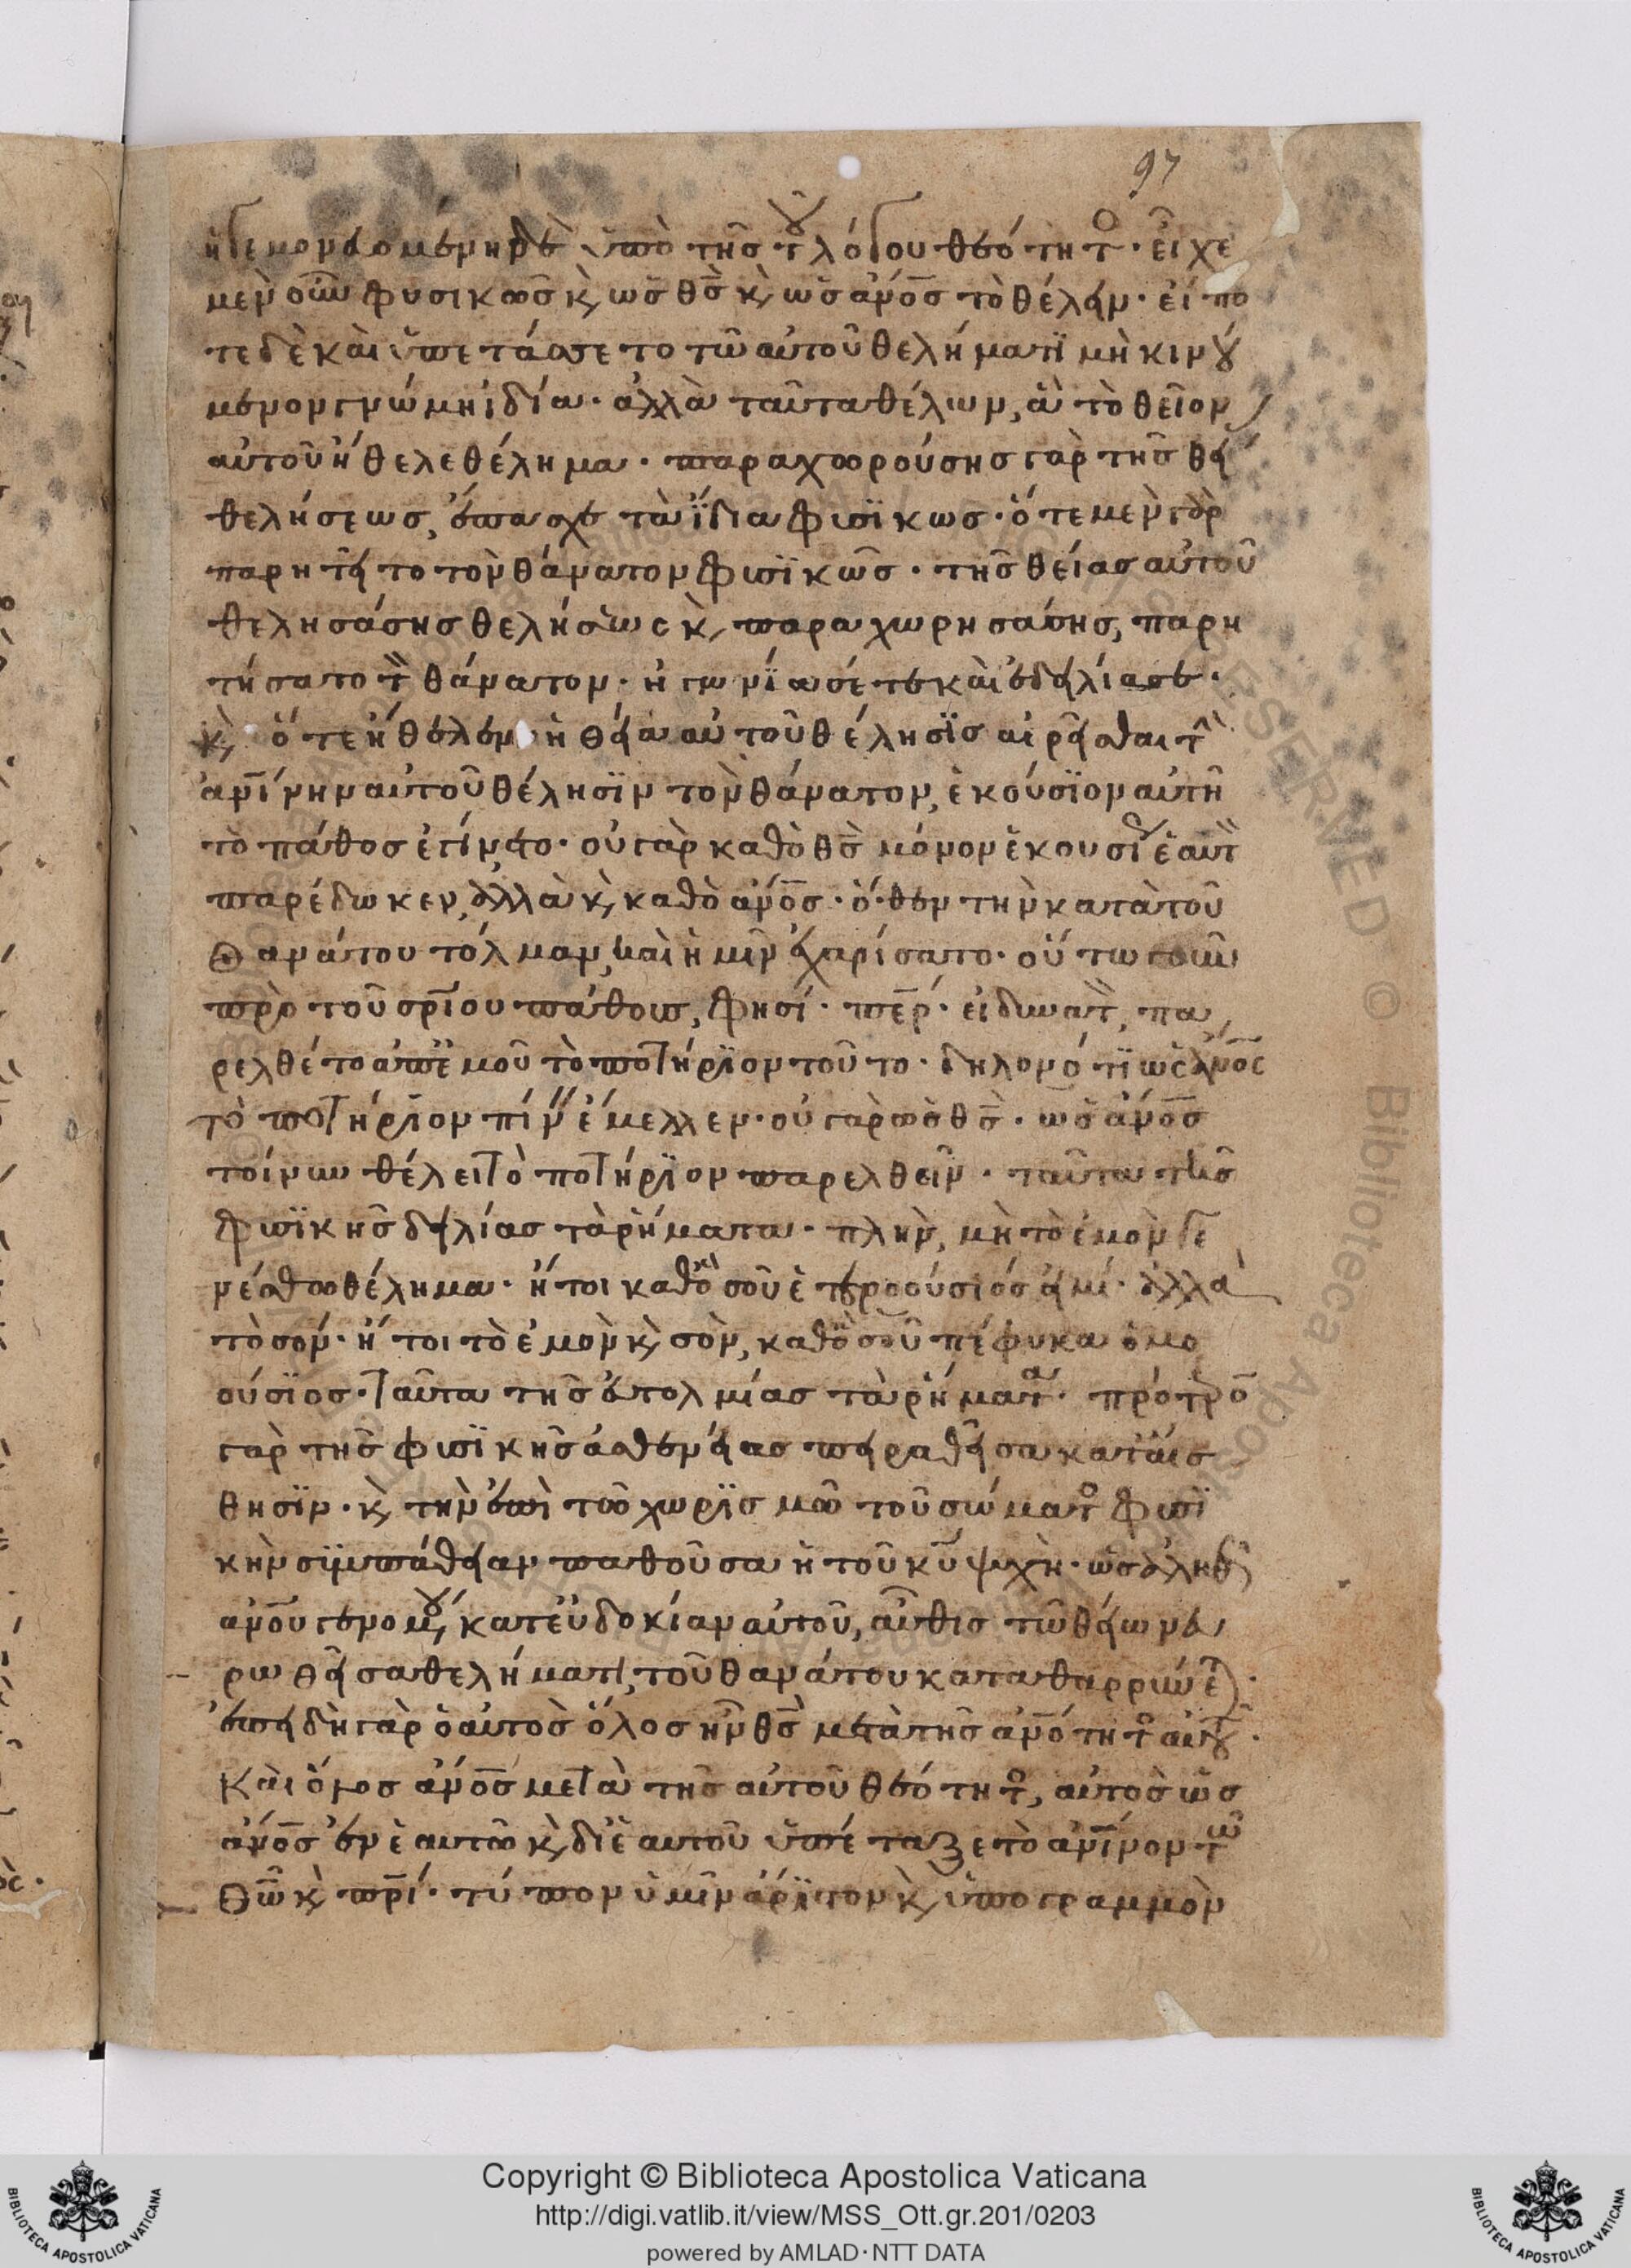 97
ἡγεμονευομένη δὲ ὑπὸ τῆς τοῦ λόγου θεότητος· εἶχε
μὲν οὖν φυσικῶς κ, ὡς θς κ, ὡς ἄνος τὸ θέλειν· εἵπο
τε δὲ καὶ ὑπετάσσετο τῶ αὐτοῦ θελήματι μὴ κινού
μενον γνώμη ἰδία· ἀλλὰ ταῦτα θέλων, ἃ τὸ θεῖον
αὐτοῦ ἤθελε θέλημα· παραχωρούσης γὰρ τῆς θεί
θελήσεως, ἔπασχε τὰ ἴδια φυσικως· ὅτε μὲν γὰρ
παρητεῖτο τὸν θάνατον φυσικῶς· τῆς θείας αὐτοῦ
θελησάσης θελήσεως κ, παραχωρησάσης, παρη
τήσατο τὸν θάνατον· ἠγωνίασέ τε καὶ ἐδειλίασε·
κ, ὅτε ἤθελεν ἡ θεία αὐτοῦ θέλησις αἱρεῖσθαι τὴν
ἀνίνην αὐτοῦ θέλησιν τὸν θάνατον, ἑκούσιον αὐτῆ
τὸ πάθος ἐγίνετο· οὐ γὰρ καθὸ θς μόνον ἑκουσίως ἑαυτὸν
παρέδωκεν, ἀλλὰ κ, καθὸ ἄνος· ὅθεν τὴν κατὰ τοῦ
θανάτου τόλμαν, καὶ ἡμῖν ἐχαρίσατο· οὕτω γοῦν
πρὸ τοῦ σρίου πάθους, φησί· περ· εἰ δυνατὸν, πα
ρελθέτο ἀπ ἐμοῦ τὸ ποτήριον τοῦτο· δηλονότι ὡς ἄνος
τὸ ποτήριον πίνειν ἔμελλεν· οὐ γὰρ ὡς θς· ὡς ἄνος
τοίνυν θέλει τὸ ποτήριον παρελθεῖν· ταῦτα τῆς
φυσικῆς δειλίας τὰ ῥήματα· πλὴν, μὴ τὸ ἐμὸν γε
νέσθω θέλημα· ἤτοι καθὸ σοῦ ἑτεροούσιός εἰμι· ἀλλὰ
τὸ σόν· ἤτοι τὸ ἐμὸν κ, σὸν, καθὸ σοῦ πέφυκα ὁμο
ούσιος· ταῦτα τῆς εὐτολμίας τὰ ῥήματα· πρότρον
γὰρ τῆς φυσικῆς ἀσθενείας πειραθεῖσα κατ αἴσ
θησιν· κ, τὴν ἐπὶ τῶ χωρισμῶ τοῦ σώματος φυσι
κὴν συμπάθειαν παθοῦσα ἡ τοῦ κυ ψυχὴ· ὡς ἀληθῶς
ἀνου γενομένου, κατ εὐδοκίαν αὐτοῦ, αὖθις τῶ θείω νευ
ρωθεῖσα θελήματι, τοῦ θανάτου καταθαρρύνεται·
ἐπειδὴ γὰρ ὁ αὐτὸς ὅλος ἦν θς μετὰ τῆς ἀνότητος αὐτοῦ·
Καὶ ὅλος ἄνος μετὰ τῆς αὐτοῦ θεότητος, αὐτὸς ὡς
ἄνος ἐν ἑαυτῶ κ, δι ἑαυτοῦ ὑπέταξε τὸ ἀνινον τῶ
θῶ κ, πρί· τύπον ὑμῖν ἄριστον κ, ὑπογραμμὸν
Copyright © Biblioteca Apostolica Vaticana
http://digi.vatlib.it/view/MSS_Ott.gr.201/0203
powered by AMLAD·NTT DATA
BIBLIOTECA APOSTOLICA VATICANA
BIBLIOTECA APOSTOLICA VATICANA